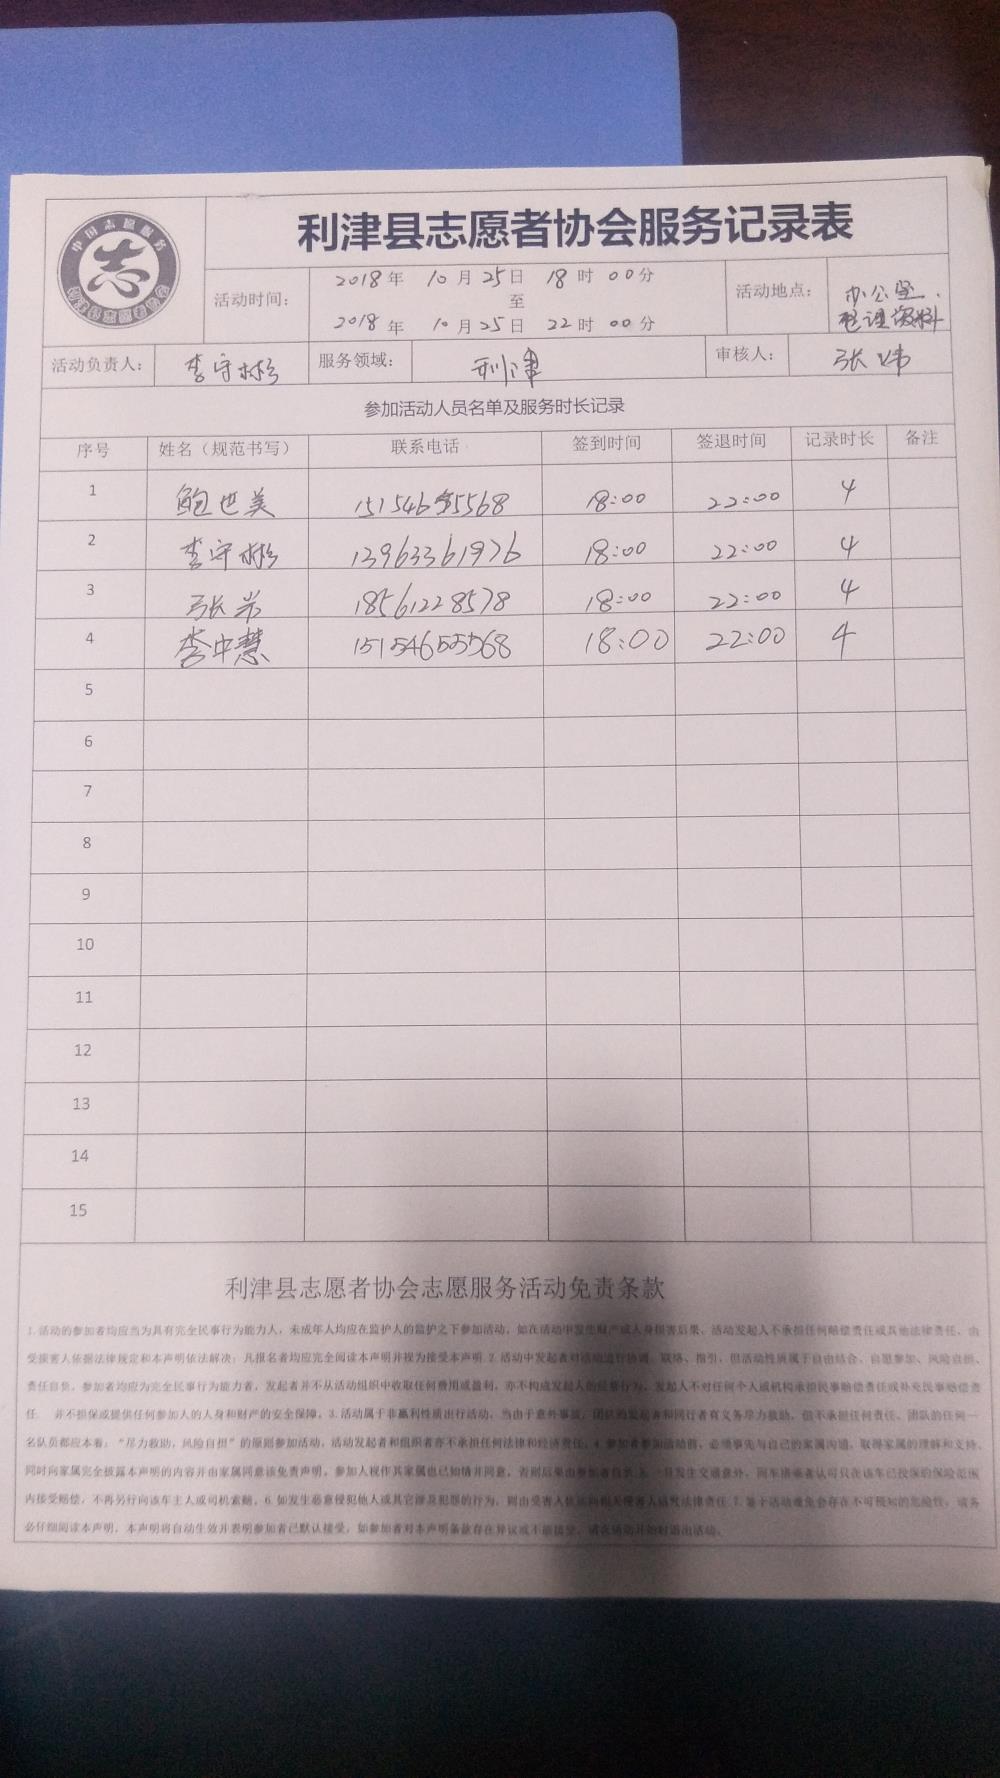 中国志愿服务
志
利津县志愿者协会服务记录表
活动时间：
2018年 10月25日 18时 00分
至
2018年 10月25日 22时 00分
活动地点：
办公室、
整理资料
活动负责人： 李守彬 服务领域： 利津 审核人： 张炜
参加活动人员名单及服务时长记录
序号 姓名（规范书写） 联系电话 签到时间 签退时间 记录时长 备注
1 鲍世美 18:00 22:00 4
2 李守彬 13963361976 18:00 22:00 4
3 张岩 18561228578 18:00 22:00 4
4 李中慧 15154655568 18:00 22:00 4
5
6
7
8
9
10
11
12
13
14
15
利津县志愿者协会志愿服务活动免责条款
1.活动的参加者均应当为具有完全民事行为能力人，未成年人均应在监护人的监护之下参加活动，如在活动中发生财产或人身损害后果，活动发起人不承担任何赔偿责任或其他法律责任，由
受损害人依据法律规定和本声明依法解决；凡报名者均应完全阅读本声明并视为接受本声明.2.活动中发起者对活动进行协调、联络、指引，但活动性质属于自由结合、自愿参加、风险自担、
责任自负，参加者均应为完全民事行为能力者，发起者并不从活动组织中收取任何费用或盈利，亦不构成发起人的经营行为，发起人不对任何个人或机构承担民事赔偿责任或补充民事赔偿责
任 并不担保或提供任何参加人的人身和财产的安全保障。3.活动属于非赢利性质出行活动，当由于意外事故，团队的发起者和同行者有义务尽力救助，但不承担任何责任，团队的任何一
名队员都应本着：“尽力救助，风险自担”的原则参加活动，活动发起者和组织者亦不承担任何法律和经济责任。4.参加者参加活动前，必须事先与自己的家属沟通，取得家属的理解和支持、
同时向家属完全披露本声明的内容并由家属同意该免责声明，参加人视作其家属也已知情并同意，否则后果由参加者自负.5.一旦发生交通意外，同车搭乘者认可只在该车已投保的保险范围
内接受赔偿，不再另行向该车主人或司机索赔。6.如发生恶意侵犯他人或其它涉及犯罪的行为，则由受害人依法向相关侵害人追究法律责任.7.鉴于活动难免会存在不可预知的危险性，请务
必仔细阅读本声明，本声明将自动生效并表明参加者已默认接受，如参加者对本声明条款存在异议或不能接受，请在活动开始时退出活动。